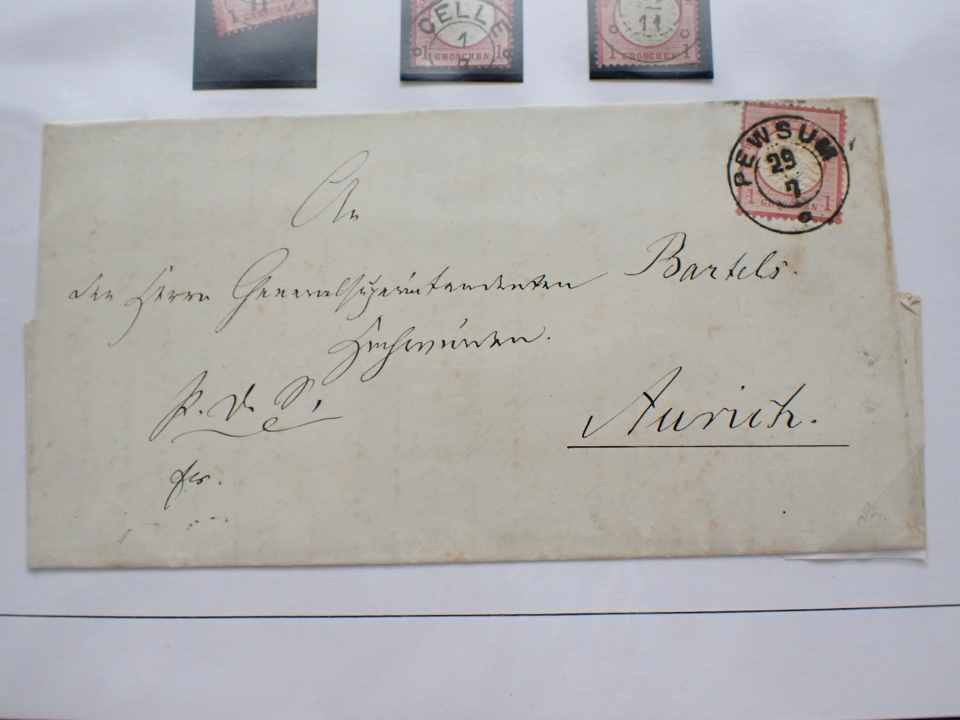 CELLE
1
1 GROSCHEN 1
11
1 GROSCHEN 1
PEWSUM
29
7
1 GROSCHEN 1
An
den Herrn Generalsuperintendenten Bartels.
Hochwürden.
Aurich.
P. D. S.
frs.